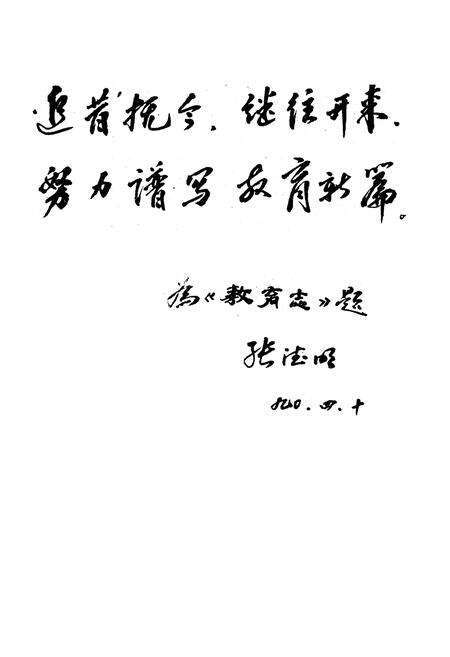 追昔抚今，继往开来，
努力谱写教育新篇。
为《教育志》题
张德明
九〇.四.十